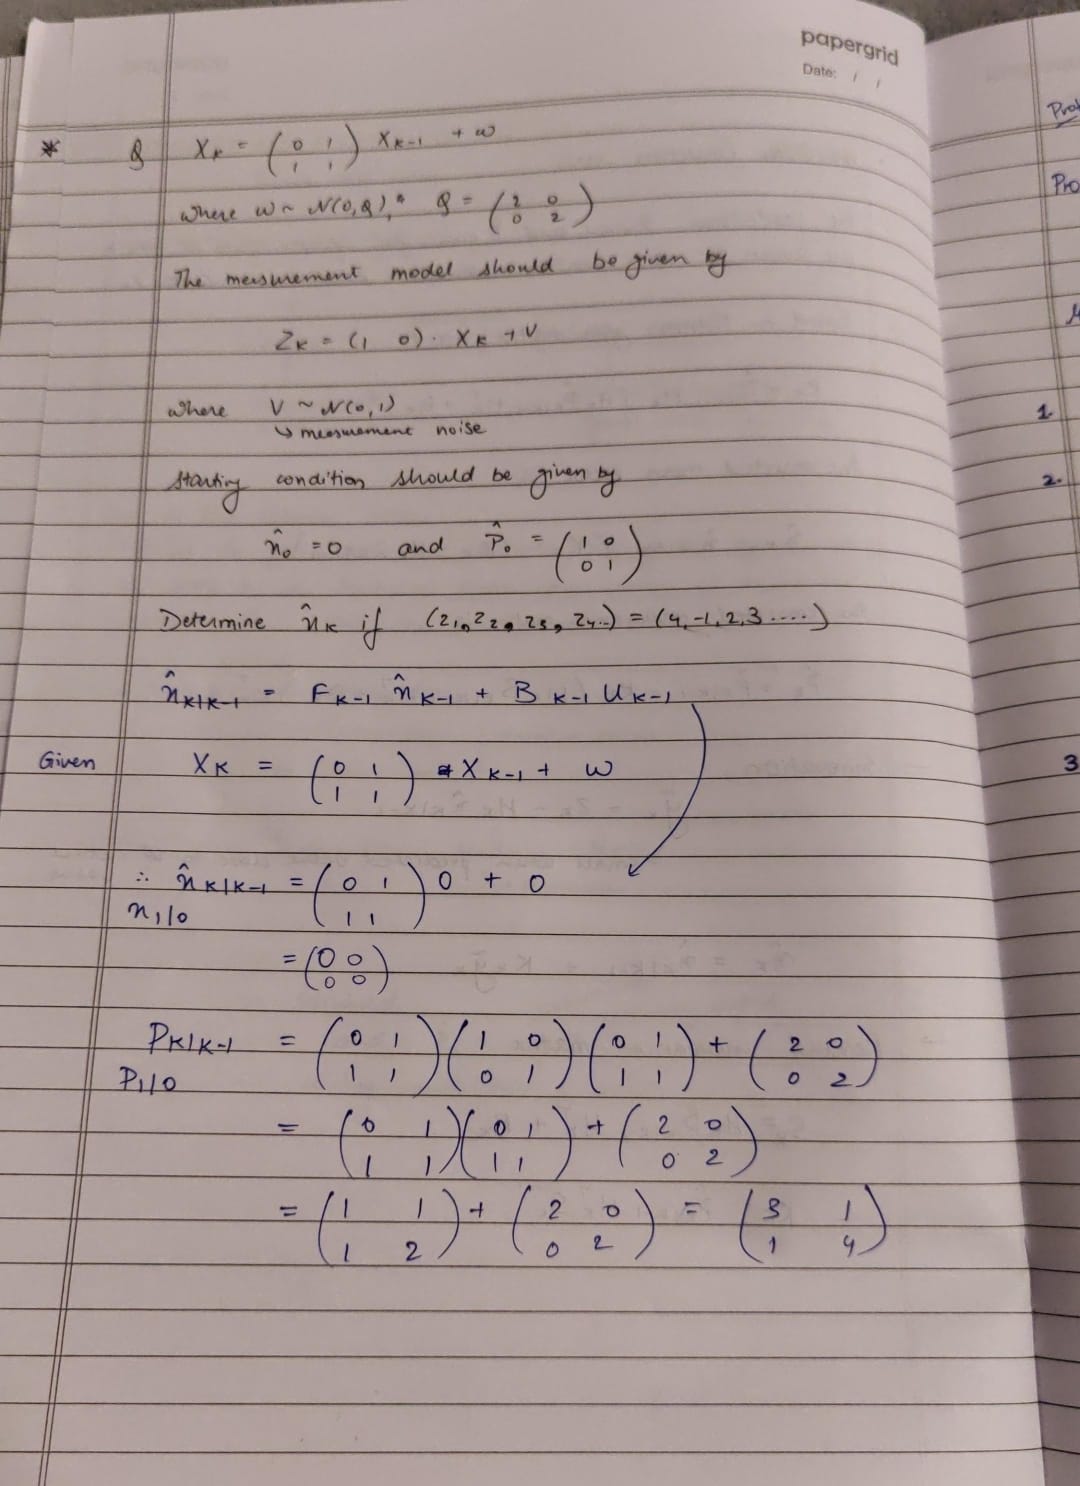 papergrid
Date: / /
* Q X_K = (0 1; 1 1) X_K-1 + w
where w ~ N(0,Q), Q = (2 0; 0 2)
The mesurement model should be given by
Z_K = (1 0) · X_K + V
where V ~ N(0,1)
↳ mesurement noise
starting condition should be given by
n̂_0 = 0 and P̂_0 = (1 0; 0 1)
Determine n̂_K if (z_1, z_2, z_3, z_4..) = (4, -1, 2, 3 ....)
n̂_K|K-1 = F_K-1 n̂_K-1 + B_K-1 U_K-1
Given X_K = (0 1; 1 1) X_K-1 + w
∴ n̂_K|K-1 = (0 1; 1 1) 0 + 0
n_1|0
= (0 0; 0 0)
P_K|K-1 = (0 1; 1 1) (1 0; 0 1) (0 1; 1 1) + (2 0; 0 2)
P_1|0
= (0 1; 1 1) (0 1; 1 1) + (2 0; 0 2)
= (1 1; 1 2) + (2 0; 0 2) = (3 1; 1 4)
Pro
1
2.
3